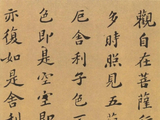 觀自在菩薩行
多時照見五
厄舍利子色
色即是空空即
亦復如是舍利